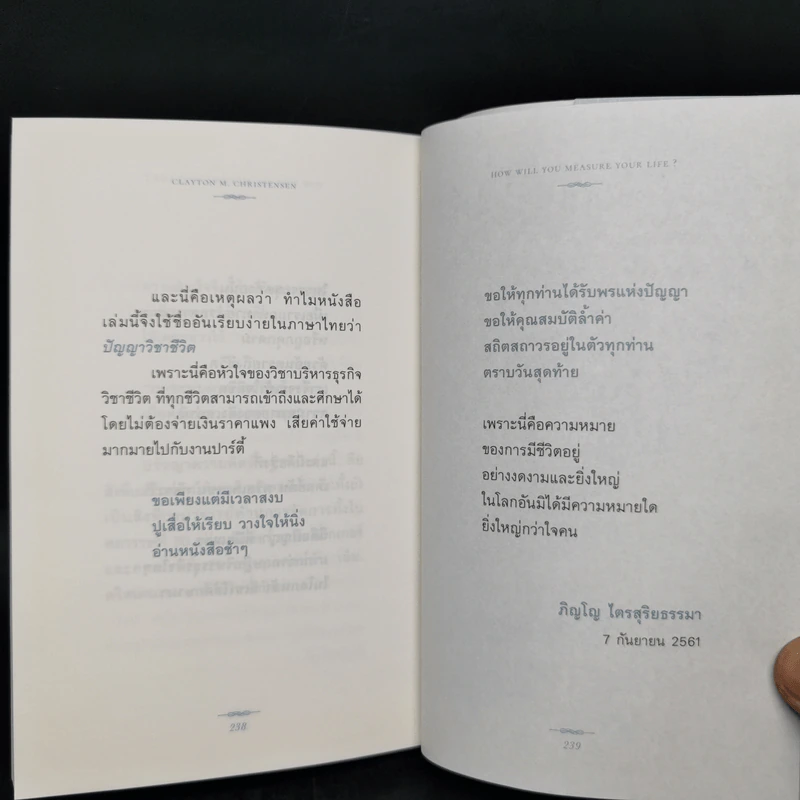 CLAYTON M. CHRISTENSEN
และนี่คือเหตุผลว่า ทำไมหนังสือ
เล่มนี้จึงใช้ชื่ออันเรียบง่ายในภาษาไทยว่า
ปัญญาวิชาชีวิต
เพราะนี่คือหัวใจของวิชาบริหารธุรกิจ
วิชาชีวิต ที่ทุกชีวิตสามารถเข้าถึงและศึกษาได้
โดยไม่ต้องจ่ายเงินราคาแพง เสียค่าใช้จ่าย
มากมายไปกับงานปาร์ตี้
ขอเพียงแต่มีเวลาสงบ
ปูเสื่อให้เรียบ วางใจให้นิ่ง
อ่านหนังสือช้าๆ
238
HOW WILL YOU MEASURE YOUR LIFE?
ขอให้ทุกท่านได้รับพรแห่งปัญญา
ขอให้คุณสมบัติล้ำค่า
สถิตสถาวรอยู่ในตัวทุกท่าน
ตราบวันสุดท้าย
เพราะนี่คือความหมาย
ของการมีชีวิตอยู่
อย่างงดงามและยิ่งใหญ่
ในโลกอันมิได้มีความหมายใด
ยิ่งใหญ่กว่าใจคน
ภิญโญ ไตรสุริยธรรมา
7 กันยายน 2561
239